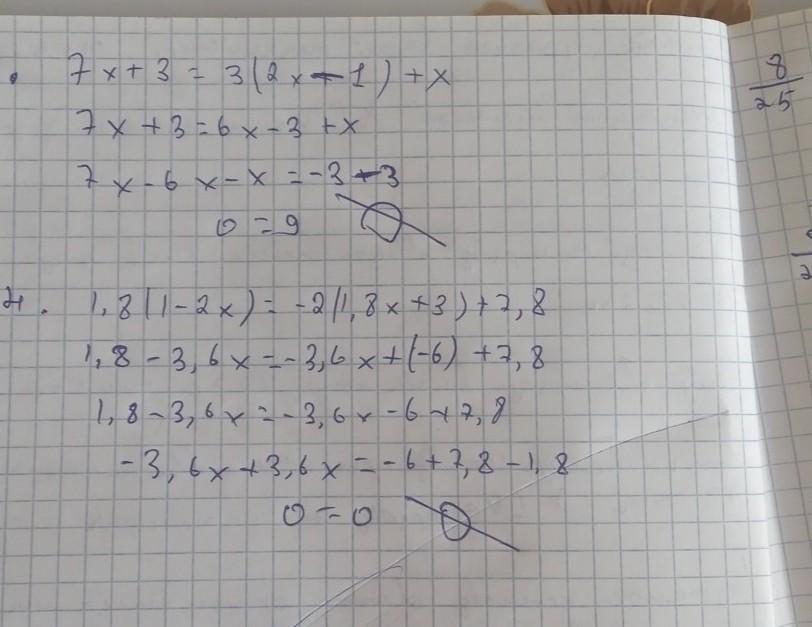 7x+3 = 3(2x-1)+x
7x+3=6x-3+x
7x-6x-x=-3-3
0=9 Ø
4. 1,8(1-2x)=-2(1,8x+3)+7,8
1,8-3,6x=-3,6x+(-6)+7,8
1,8-3,6x=-3,6x-6+7,8
-3,6x+3,6x=-6+7,8-1,8
0=0 Ø
8
25